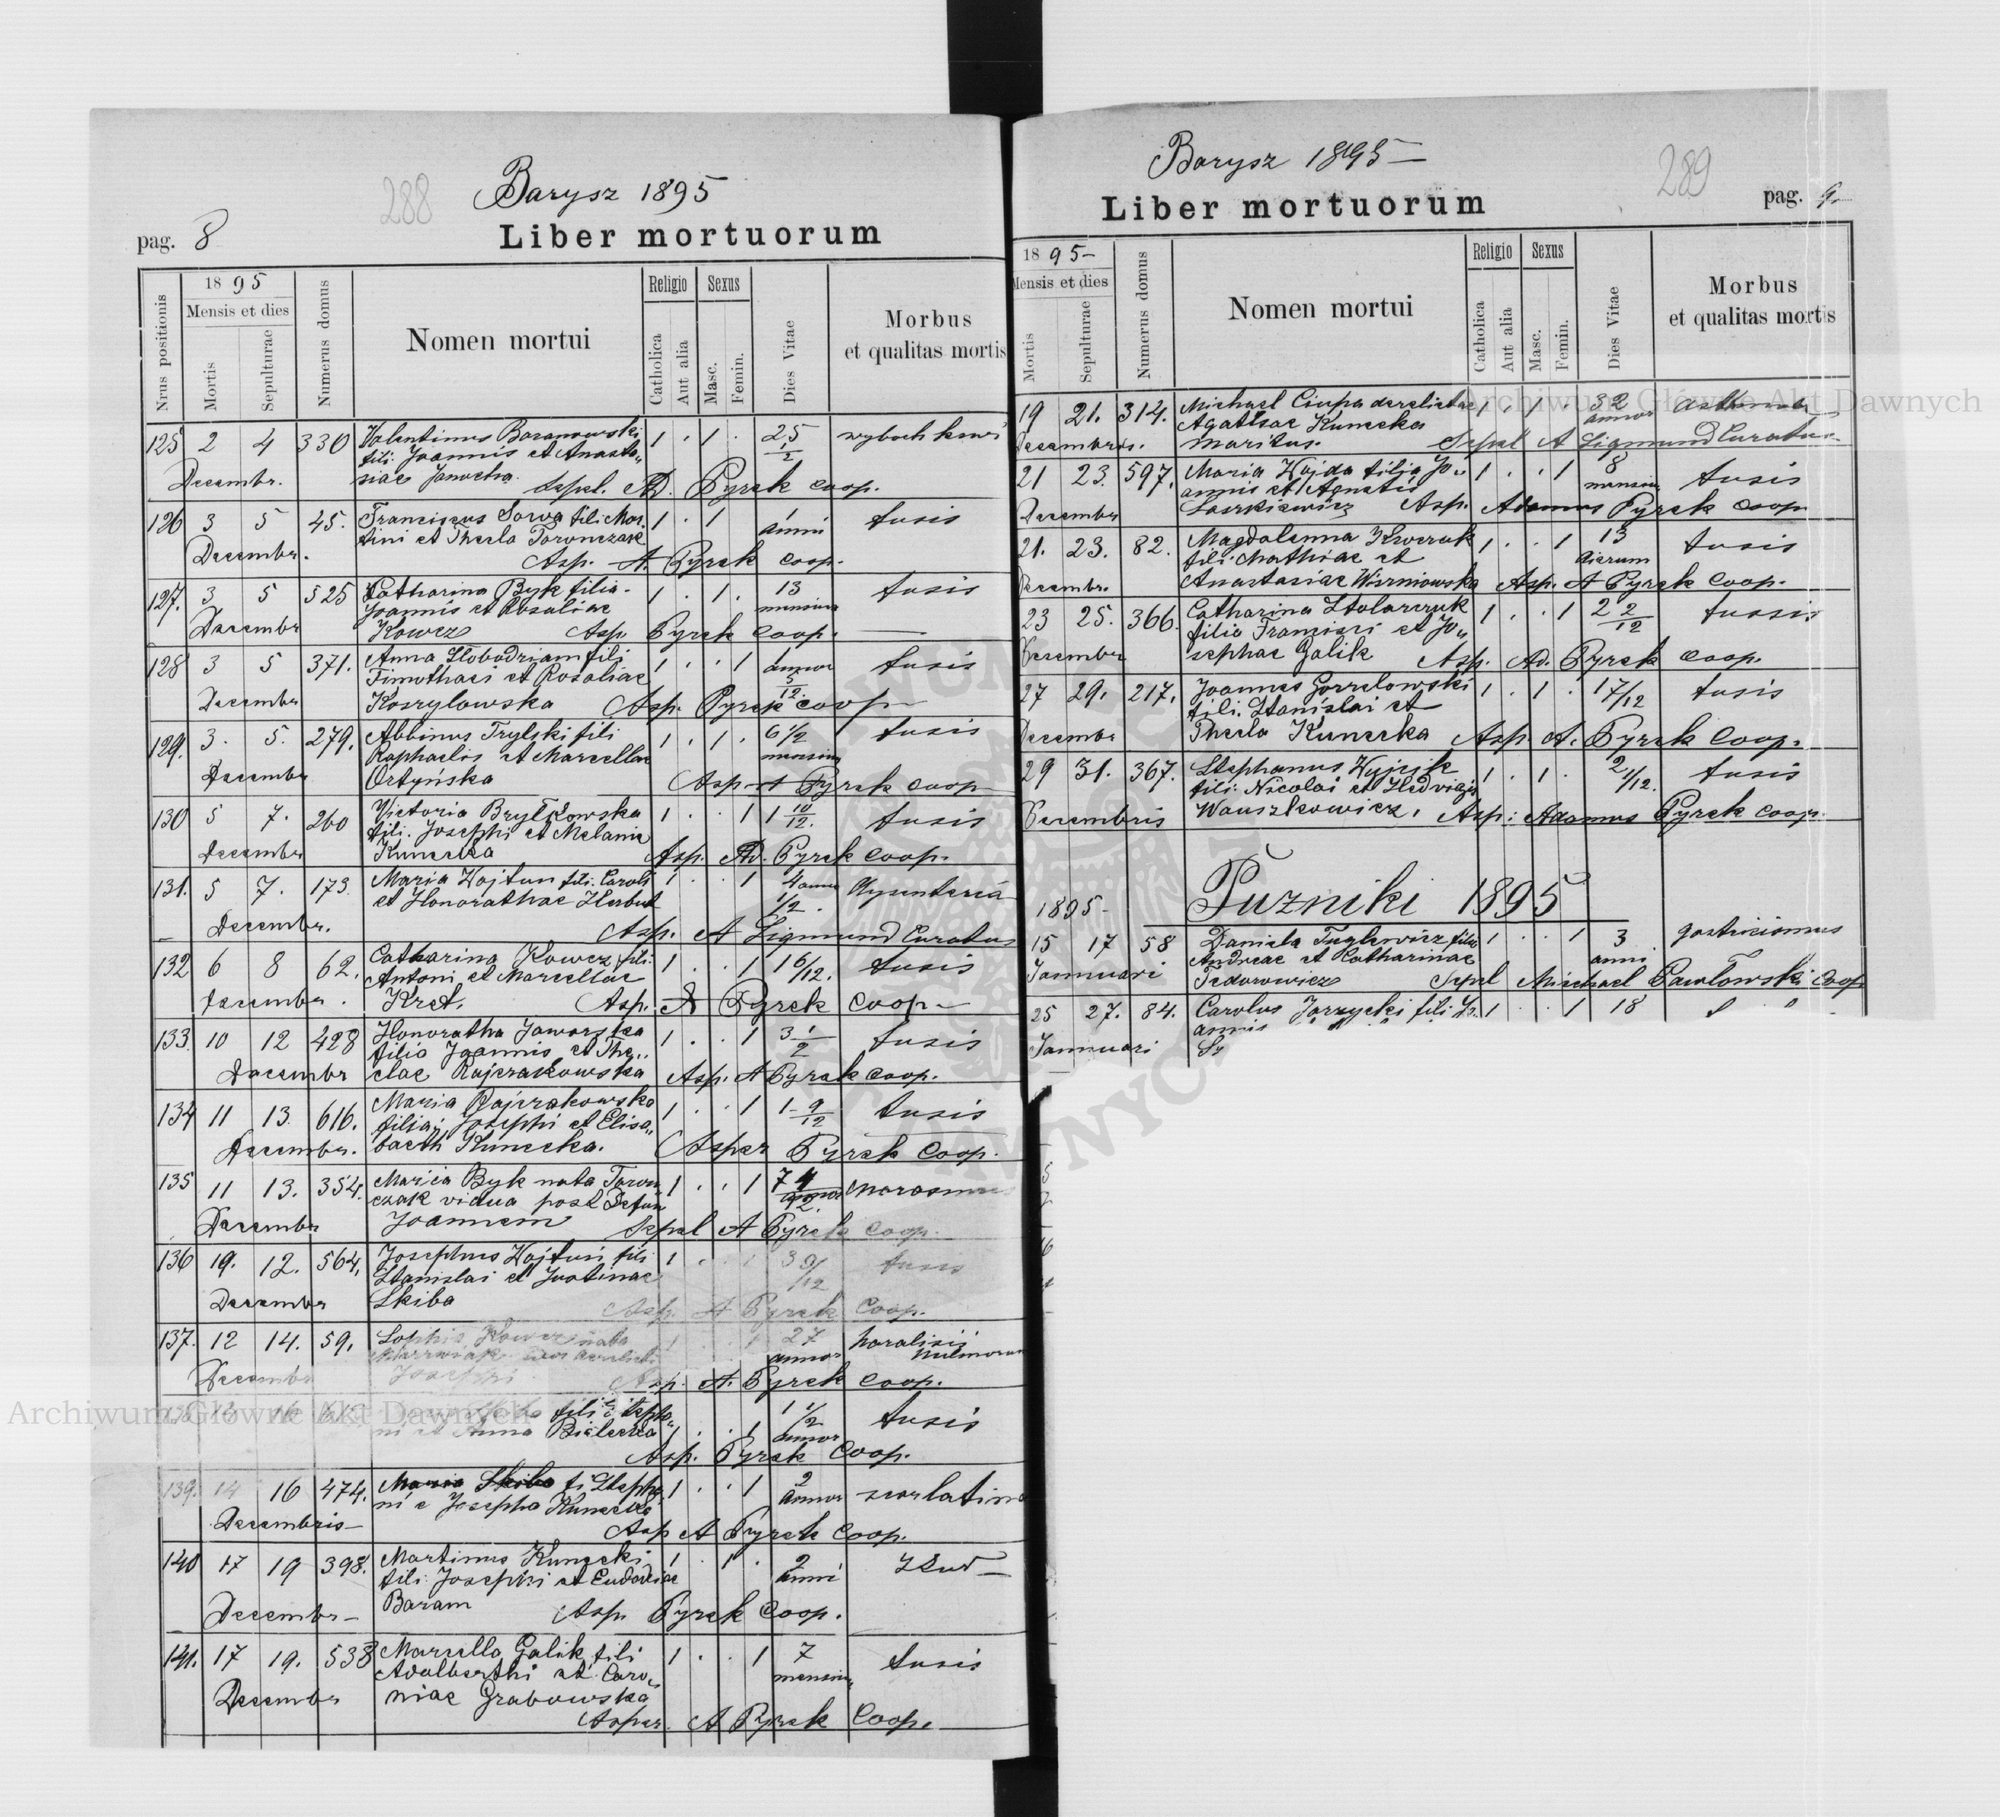 288
Barysz 1895
pag. 8
Liber mortuorum
Nrus positionis
1895
Mensis et dies
Mortis
Sepulturae
Numerus domus
Nomen mortui
Religio
Catholica
Aut alia
Sexus
Masc.
Femin.
Dies Vitae
Morbus
et qualitas mortis
125 2 4 330 Valentinus Baranowski 1 . 1 . 25
fili: Joannis et Anasta„ 1/2
Decembr. siae Janocha. Sepel. Ad. Pyrek coop.
126 3 5 45. Franciscus Sowa fili Mar„ 1 . 1 1 tusis
tini et Thecla Taronczak anni
Decembr. Asp. A. Pyrek coop.
127. 3 5 525 Catharina Byk filia 1 . 1 . 13 tusis
Joannis et Rosaliae mensium
Decembr Kowcz Asp. Pyrek coop.
128 3 5 371. Anna Slobodziam fili 1 . . 1 annor tusis
Timothaei et Rosaliae 5/12.
Decembr Koszylowska Asp. Pyrek coop
129. 3. 5. 279. Albinus Trylski fili 1 . 1 . 6 1/2 tusis
Raphaelis et Marcellae mensium
Decembr Ortyńska Asp A Pyrek coop
130 5 7. 260 Victoria Brylkowska 1 . . 1 1 10/12. tusis
fili. Josephi et Melanie
Decembr Kunecka Asp. Ad. Pyrek coop.
131. 5 7. 173. Maria Wojtun fili. Caroli 1 . . 1 4 anni Dysenteria
et Honorathae Herbut 1/2.
Decembr. Asp. A Zigmund Curatus
132 6 8 62. Catharina Kowcz fili 1 . . 1 1 6/12. tusis
Antoni et Marcellae
Decembr. Kret. Asp. A Pyrek coop
133. 10 12 428 Honoratha Jaworska 1 . . 1 3 1/2 tusis
filia Joannis et The„
Decembr clae Rajczakowska Asp. A Pyrek coop.
134 11 13. 616. Maria Rajczakowska 1 . . 1 1 9/12 tusis
filia Josephi et Elisa„
Decembr. baeth Kunecka. Asper Pyrek Coop.
135 11 13. 354. Maria Byk nata Taron 1 . . 1 74 Marasmus
czak vidua post Defun
Decembr Joannem Sepel A Pyrek coop.
136 19. 12. 564. Josephus Wojtuń fili 1 . . 1 3 9/12 tusis
Stanislai et Justinae
Decembr Skiba Asp. A Pyrek Coop.
137. 12 14. 59. Sophia Kowcz nata 1 . . 1 27 paralisii
annor pulmonum
Decembr Josephi Asp. A. Pyrek coop.
16 fili Stepha„ . . 1 1 1/2 tusis
ni et Anna Bielecka annor
Asp. Pyrek Coop.
139. 14 16 474. Maria Skiba fi Stepha„ 1 . . 1 2 scarlatina
ni e Josepha Kunecka annor
Decembris Asp A Pyrek Coop.
140 17 19 398. Martinus Kunecki 1 . 1 . 2
fili: Josephi et Eudoxiae anni
Decembr Baram Asp. Pyrek Coop.
141. 17 19. 538 Marcella Galik fili 1 . . 1 7 tusis
Adalberthi et Caro„ mensium
Decembr niae Grabowska
Asper. A Pyrek Coop.
289
Barysz 1895
Liber mortuorum
pag. 9
1895
Mensis et dies
Mortis
Sepulturae
Numerus domus
Nomen mortui
Religio
Catholica
Aut alia
Sexus
Masc.
Femin.
Dies Vitae
Morbus
et qualitas mortis
19 21. 314. Michael Ciupa derelictae 1 . 1 . 32
Agathae Kunecka annor
Decembris. maritus. Sepel A Zigmund Curatus
21 23. 597. Maria Wojda filia Jo„ 1 . . 1 8 tusis
annis et Agnetis mensium
Decembr Laszkiewicz Asp. Adamus Pyrek coop
21. 23. 82. Magdalenna Krvczuk 1 . . 1 13 tusis
fili. Mathiae et dierum
Decembr. Anastasiae Wiszniowska Asp. A Pyrek Coop.
23 25. 366. Catharina Stolarczuk 1 . . 1 2 2/12 tussis
filia Francisci et Jo„
Decembr sephae Galik Asp. Ad. Pyrek coop.
27 29. 217. Joannes Gorzelowski 1 . 1 . 1 7/12 tusis
fili. Stanislai et
Decembr Thecla Kunecka Asp. A. Pyrek Coop.
29 31. 367. Stephanus Wyjcik 1 . 1 . 2 4/12. tusis
fili: Nicolai et Hedvigis
Decembris Wanszkowicz. Asp: Adamus Pyrek coop.
1895 Puzniki 1895
15 17 58 Daniela Tuglewicz filia 1 . . 1 3 gastricismus
Andreae et Catharinae anni
Jannuari Fedorowicz Sepel Michael Pawlowski Coop
25 27. 84. Carolus Jarzycki fili Jo. 1 . . 1 18 „ „
annis
Jannuari
Archiwum Główne Akt Dawnych
Archiwum Główne Akt Dawnych